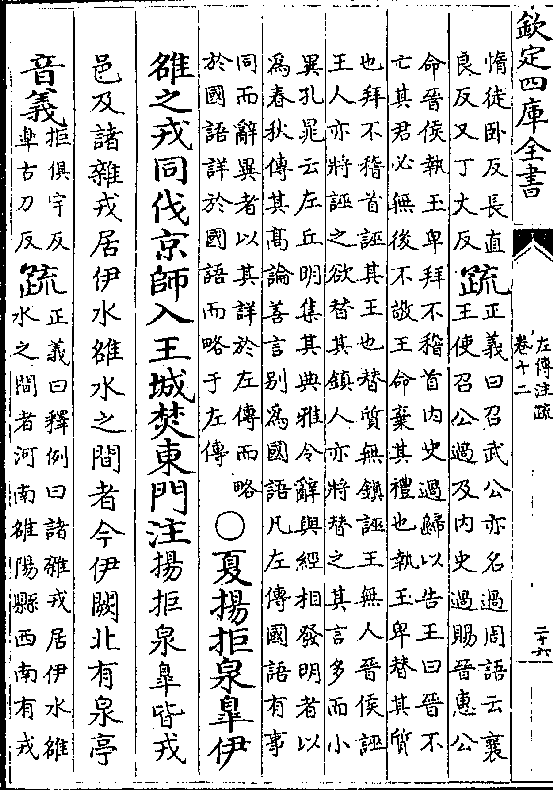 欽定四庫全書
左傳注疏
卷十二
二十六
惰徒卧反長直
良反又丁丈反
疏
正義曰召武公亦名過周語云襄
王使召公過及內史過賜晉惠公
命晉侯執玉卑拜不稽首內史過歸以告王曰晉不
亡其君必無後不敬王命棄其禮也執玉卑替其質
也拜不稽首誣其王也替質無鎮誣王無人晉侯誣
王人亦將誣之欲替其鎮人亦將替之其言多而小
異孔晁云左丘明集其典雅令辭與經相發明者以
為春秋傳其髙論善言别為國語凡左傳國語有事
同而辭異者以其詳於左傳而略
於國語詳於國語而略于左傳
○夏揚拒泉臯伊
雒之戎同伐京師入王城焚東門注揚拒泉臯皆戎
邑及諸雜戎居伊水雒水之間者今伊闕北有泉亭
音義
拒俱宇反
臯古刀反
疏
正義曰釋例曰諸雜戎居伊水雒
水之間者河南雒陽縣西南有戎